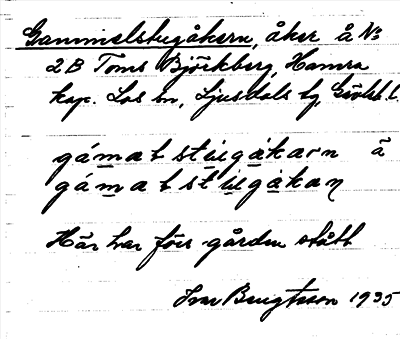 Gammelstugåkern, åker å No
2B Toms Björkberg, Hamra
kap. Los sn, Ljusdals tg, Gävleb. l.
gámatstúgåkarn å
gámatstúgåkaṇ
Här har förr gården stått
Ivar Bengtsson 1935